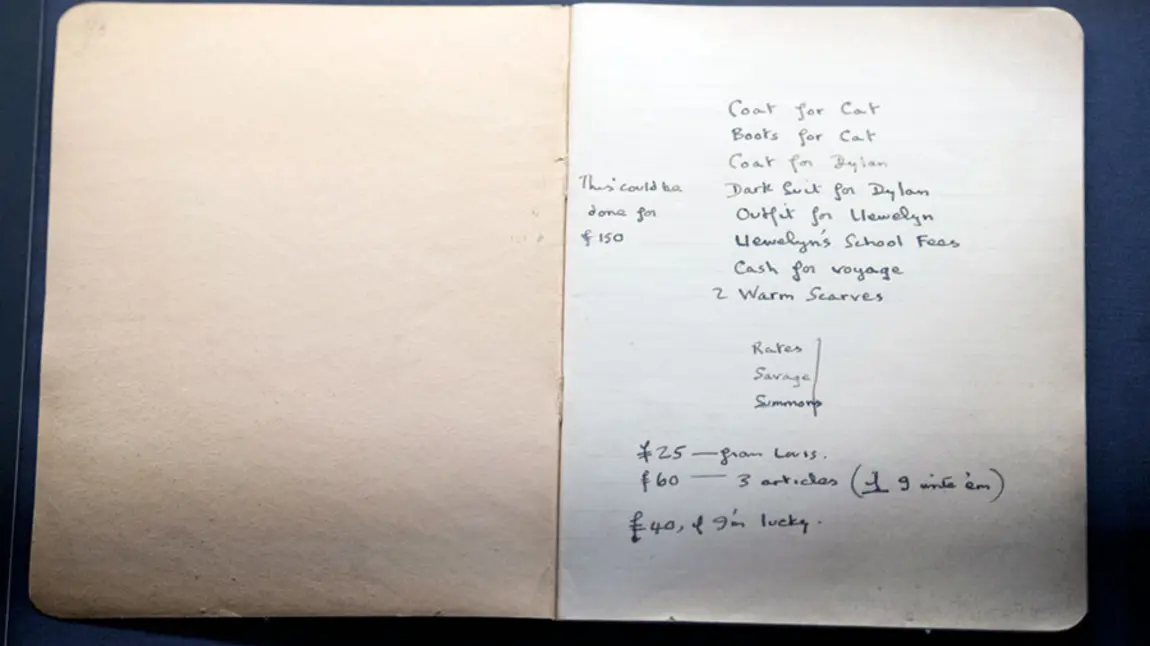 Coat for Cat
Boots for Cat
Coat for Dylan
This could be
done for
£150
Dark Suit for Dylan
Outfit for Llewelyn
Llewelyn's School Fees
Cash for voyage
2 Warm Scarves
Rates
Savage
Summons
£25 — from
£60 — 3 articles (If I write 'em)
£40, if I'm lucky.